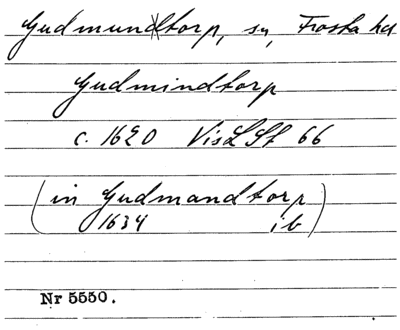 Gudmundtorp, sn, Frosta hd
Gudmindtorp
c. 1620 VisLSt 66
(in Gudmandtorp
1634 ib)
Nr 5550.